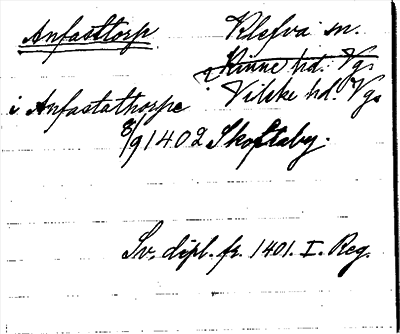 Anfasttorp Klefva sn.
Kinne hd. Vg.
i Anfastathorpe Vilske hd. Vg.
8/9 1402 Skoftaby.
Sv. dipl. fr. 1401. I. Reg.